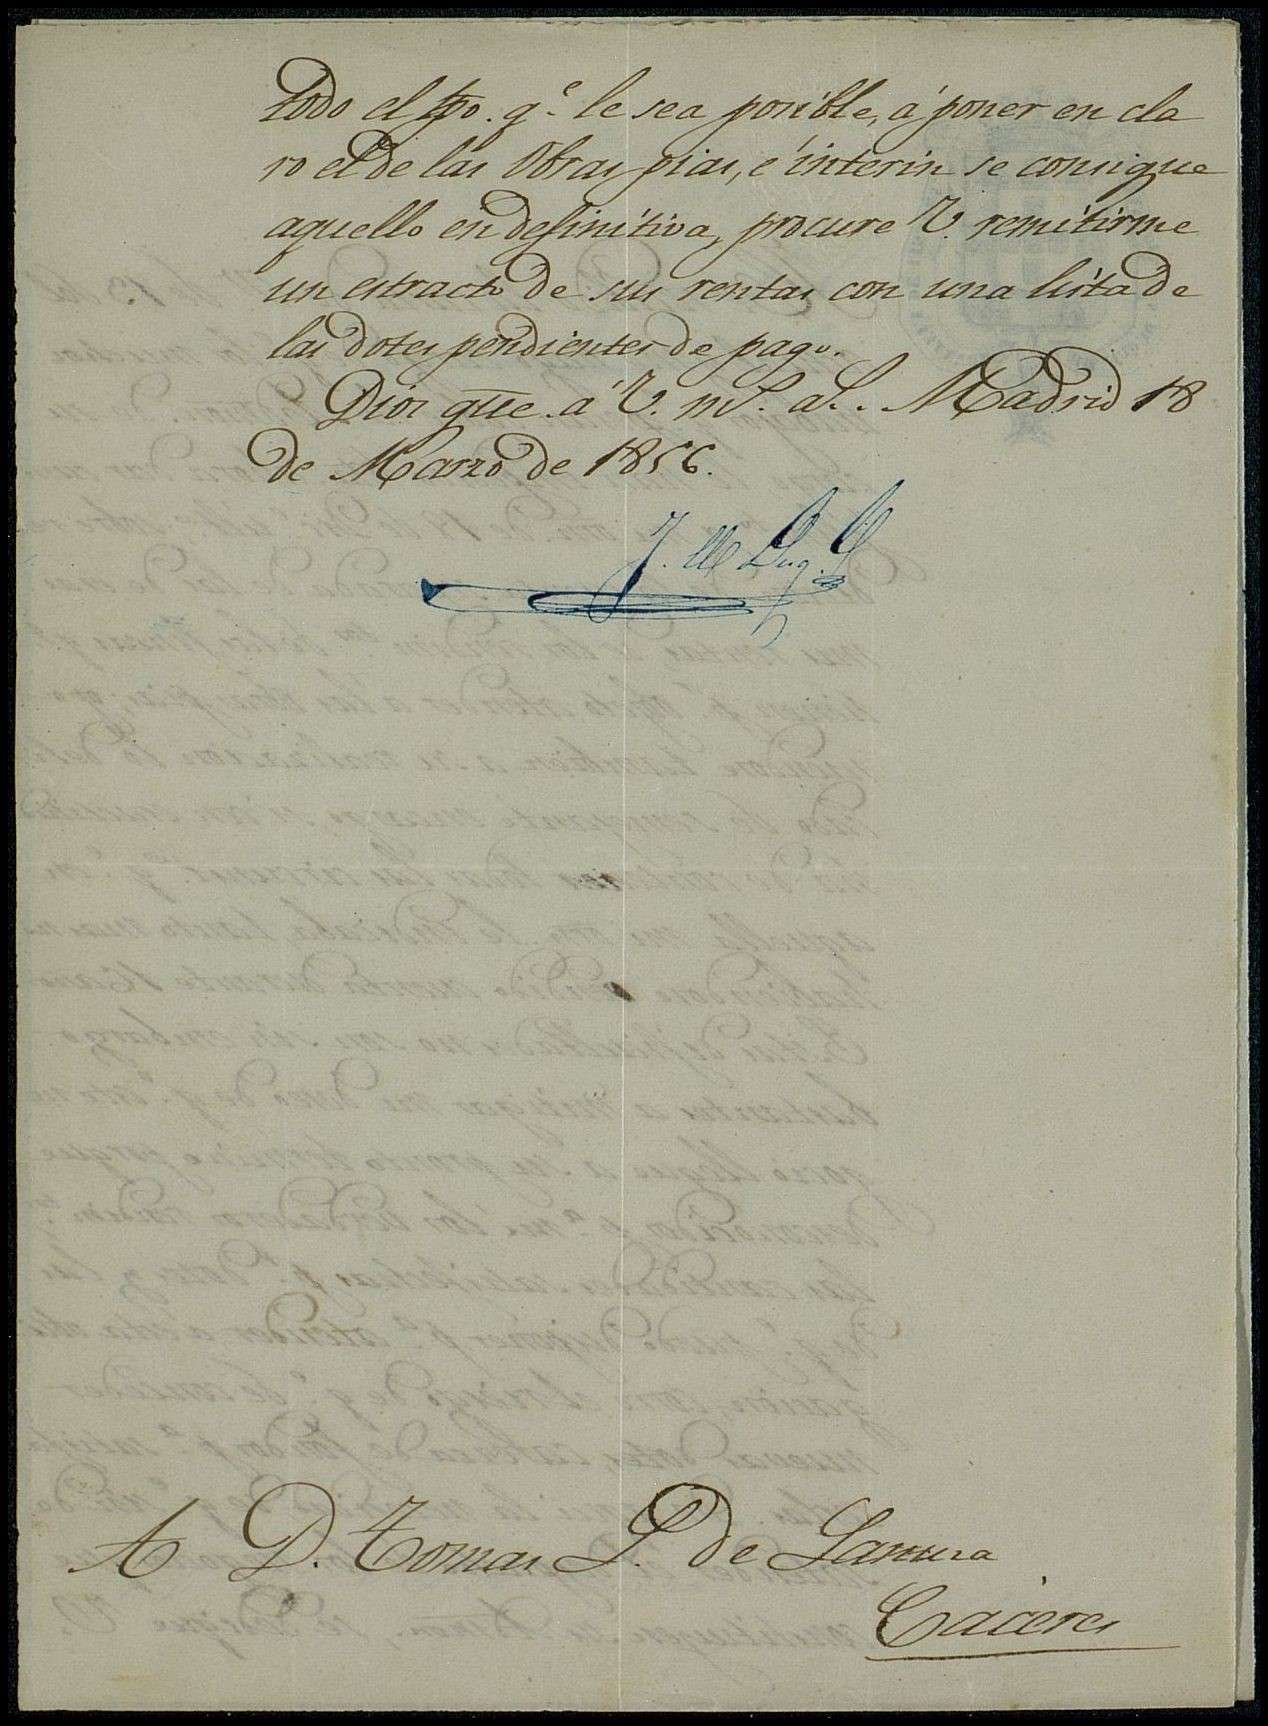 todo el tpo. qe. le sea posible, á poner en cla
ro el de las Obras pias, é interin se consigue
aquello en definitiva, procure V. remitirme
un estracto de sus rentas con una lista de
las dotes pendientes de pago.
Dios gue. á V. ms. as. Madrid 18
de Marzo de 1856.
A D. Tomas S. de
Cáceres